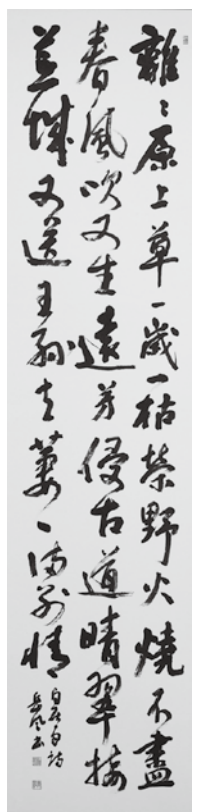 離〻原上草一歳一枯榮野火燒不盡
春風吹又生遠芳侵古道晴翠接
荒城又送王孫去萋〻満別情
白居易詩
岳風書